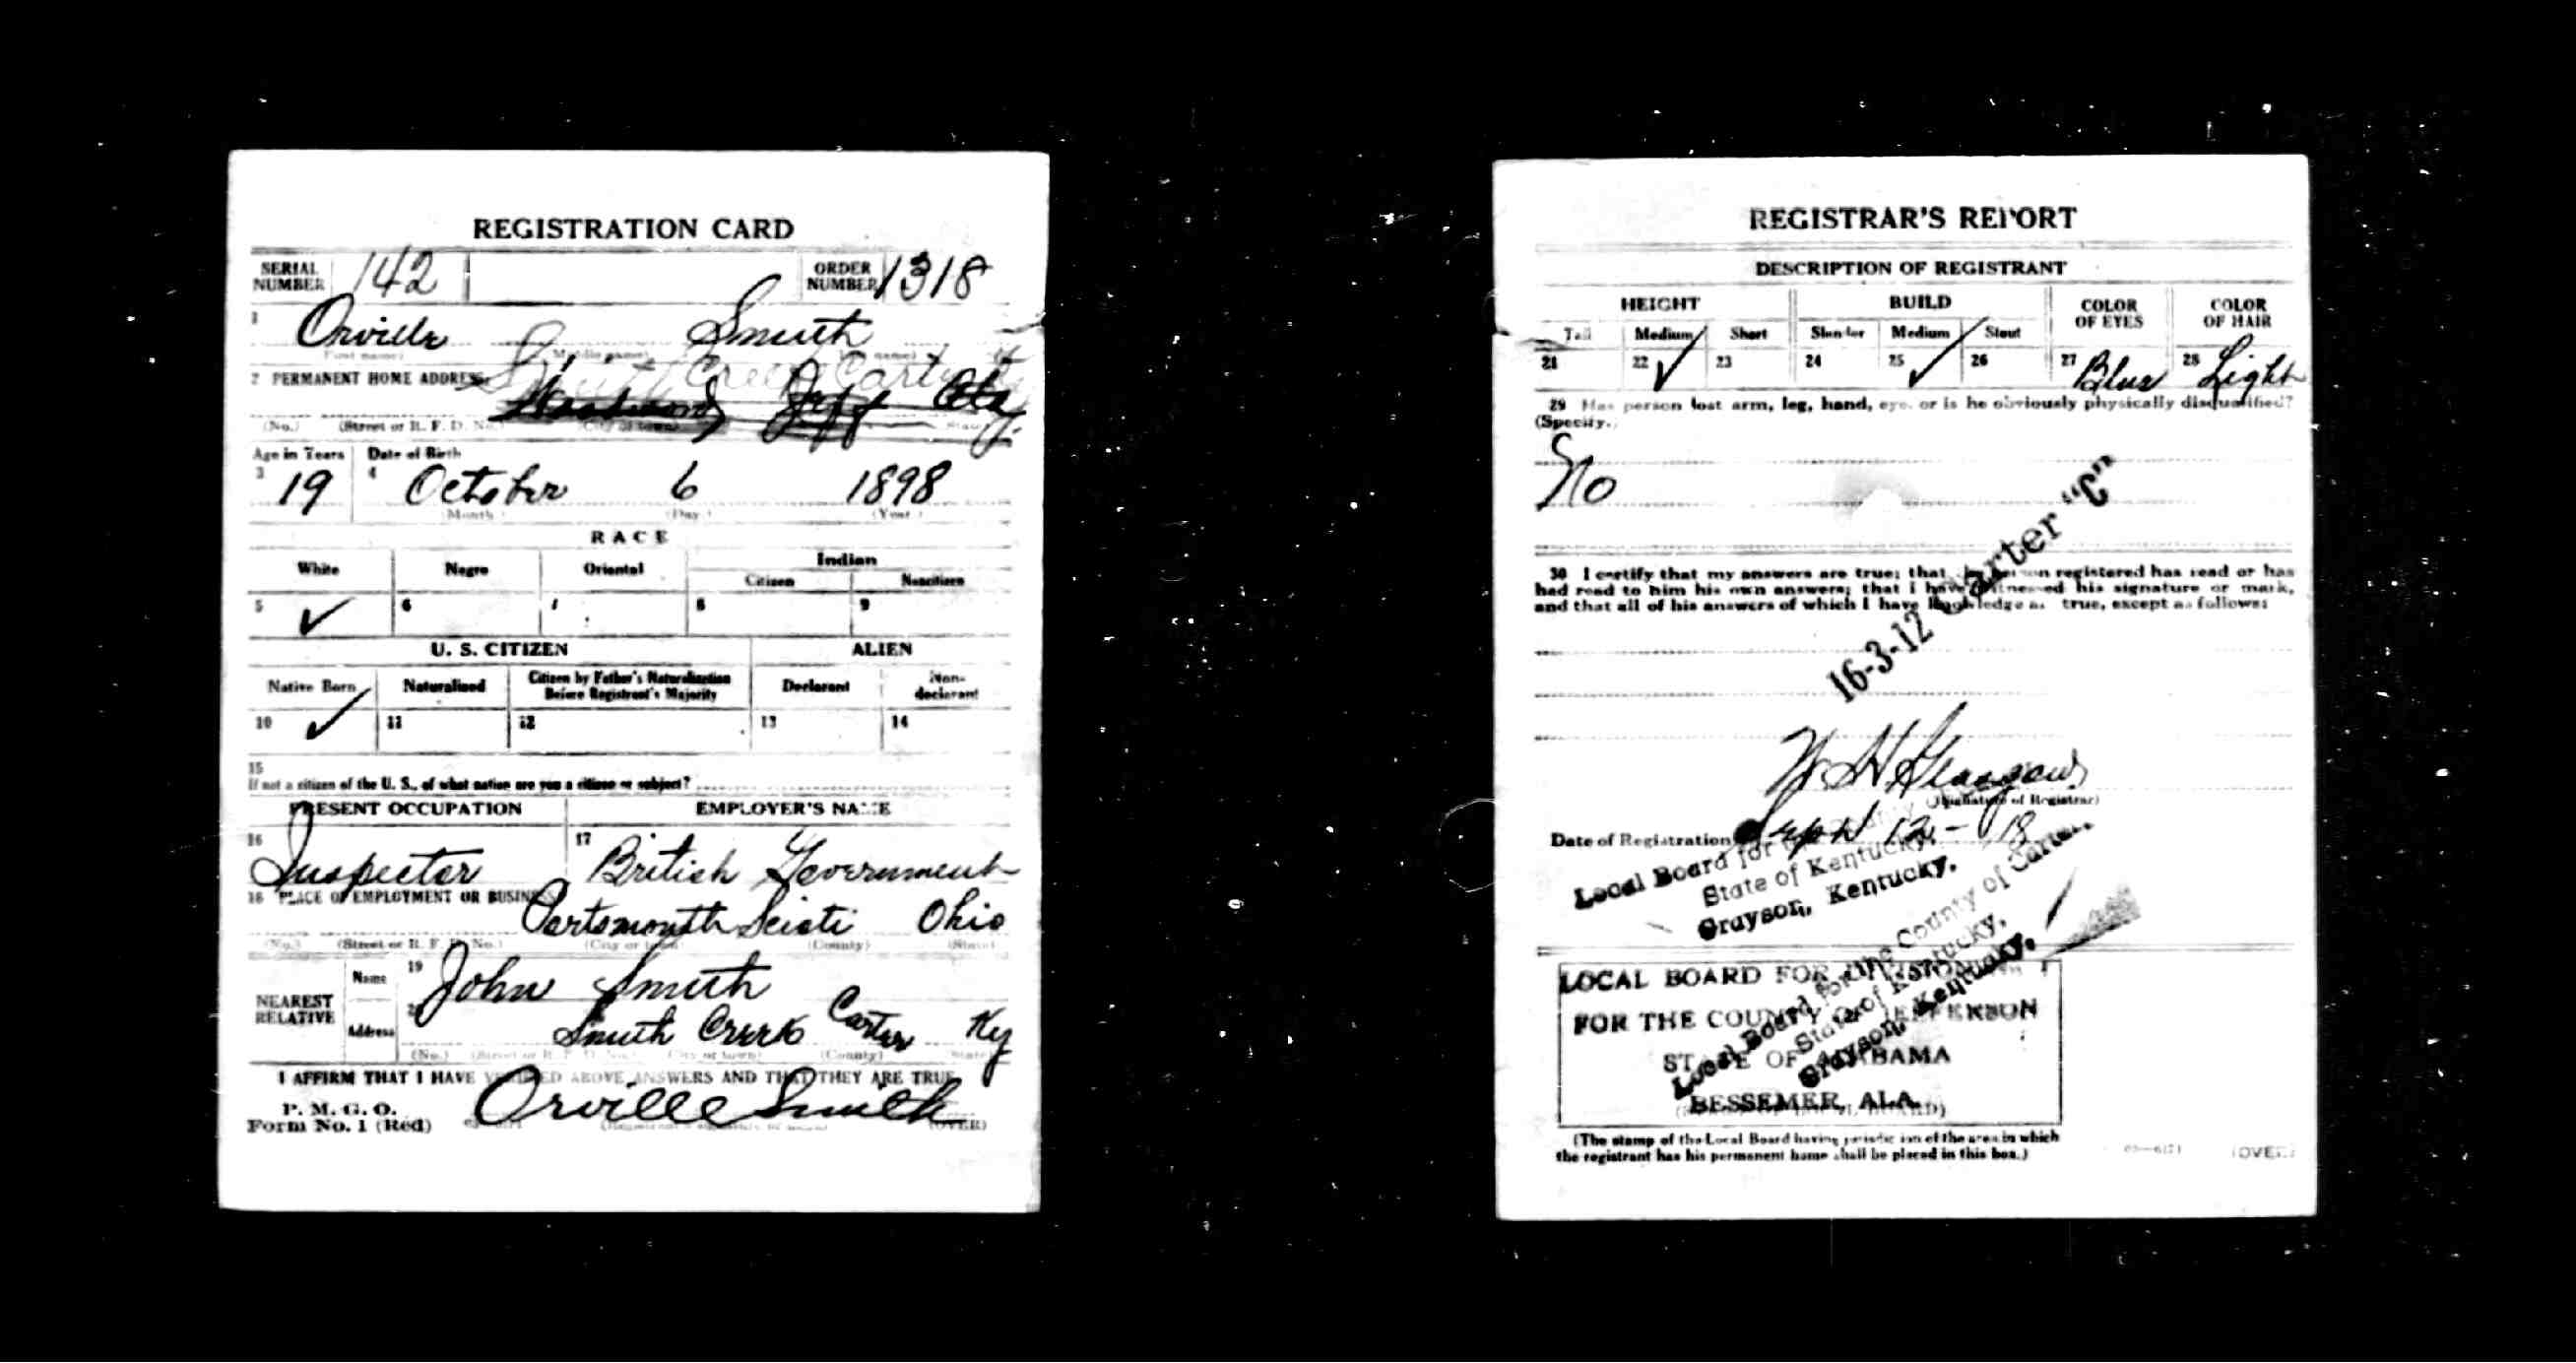 REGISTRATION CARD
SERIAL NUMBER 142 ORDER NUMBER 1318
1 Orville Smith
(First name) (Middle name) (Last name)
2 PERMANENT HOME ADDRESS Smith Creek Carter Ky
Jeff Ala
(No.) (Street or R. F. D. No.) (City or town) (State)
Age in Years Date of Birth
3 19 4 October 6 1898
(Month.) (Day.) (Year.)
RACE
White Negro Oriental Indian
Citizen Noncitizen
5 ✓ 6 7 8 9
U. S. CITIZEN ALIEN
Native Born Naturalized Citizen by Father's Naturalization Before Registrant's Majority Declarant Non-declarant
10 ✓ 11 12 13 14
15
If not a citizen of the U. S., of what nation are you a citizen or subject?
PRESENT OCCUPATION EMPLOYER'S NAME
16 Inspector 17 British Government
18 PLACE OF EMPLOYMENT OR BUSINESS
Portsmouth Scioti Ohio
(No.) (Street or R. F. D. No.) (City or town) (County) (State)
NEAREST RELATIVE Name 19 John Smith
Address 20 Smith Creek Carter Ky
(No.) (Street or R. F. D. No.) (City or town) (County) (State)
I AFFIRM THAT I HAVE VERIFIED ABOVE ANSWERS AND THAT THEY ARE TRUE
P. M. G. O.
Form No. 1 (Red) Orville Smith
(OVER)
REGISTRAR'S REPORT
DESCRIPTION OF REGISTRANT
HEIGHT BUILD COLOR OF EYES COLOR OF HAIR
Tall Medium Short Slender Medium Stout
21 22 ✓ 23 24 25 ✓ 26 27 Blue 28 Light
29 Has person lost arm, leg, hand, eye, or is he obviously physically disqualified?
(Specify.)
No
30 I certify that my answers are true; that the person registered has read or has
had read to him his own answers; that I have witnessed his signature or mark,
and that all of his answers of which I have knowledge are true, except as follows:
16-3-12 Carter "C"
W H Glasgow
(Signature of Registrar)
Date of Registration Sept 12 - 18
Local Board for the County of Carter,
State of Kentucky,
Grayson, Kentucky.
Local Board for the County of Carter,
State of Kentucky,
Grayson, Kentucky.
LOCAL BOARD FOR DIVISION
FOR THE COUNTY OF JEFFERSON
STATE OF ALABAMA
BESSEMER, ALA.
(The stamp of the Local Board having jurisdiction of the area in which
the registrant has his permanent home shall be placed in this box.)
(OVER)